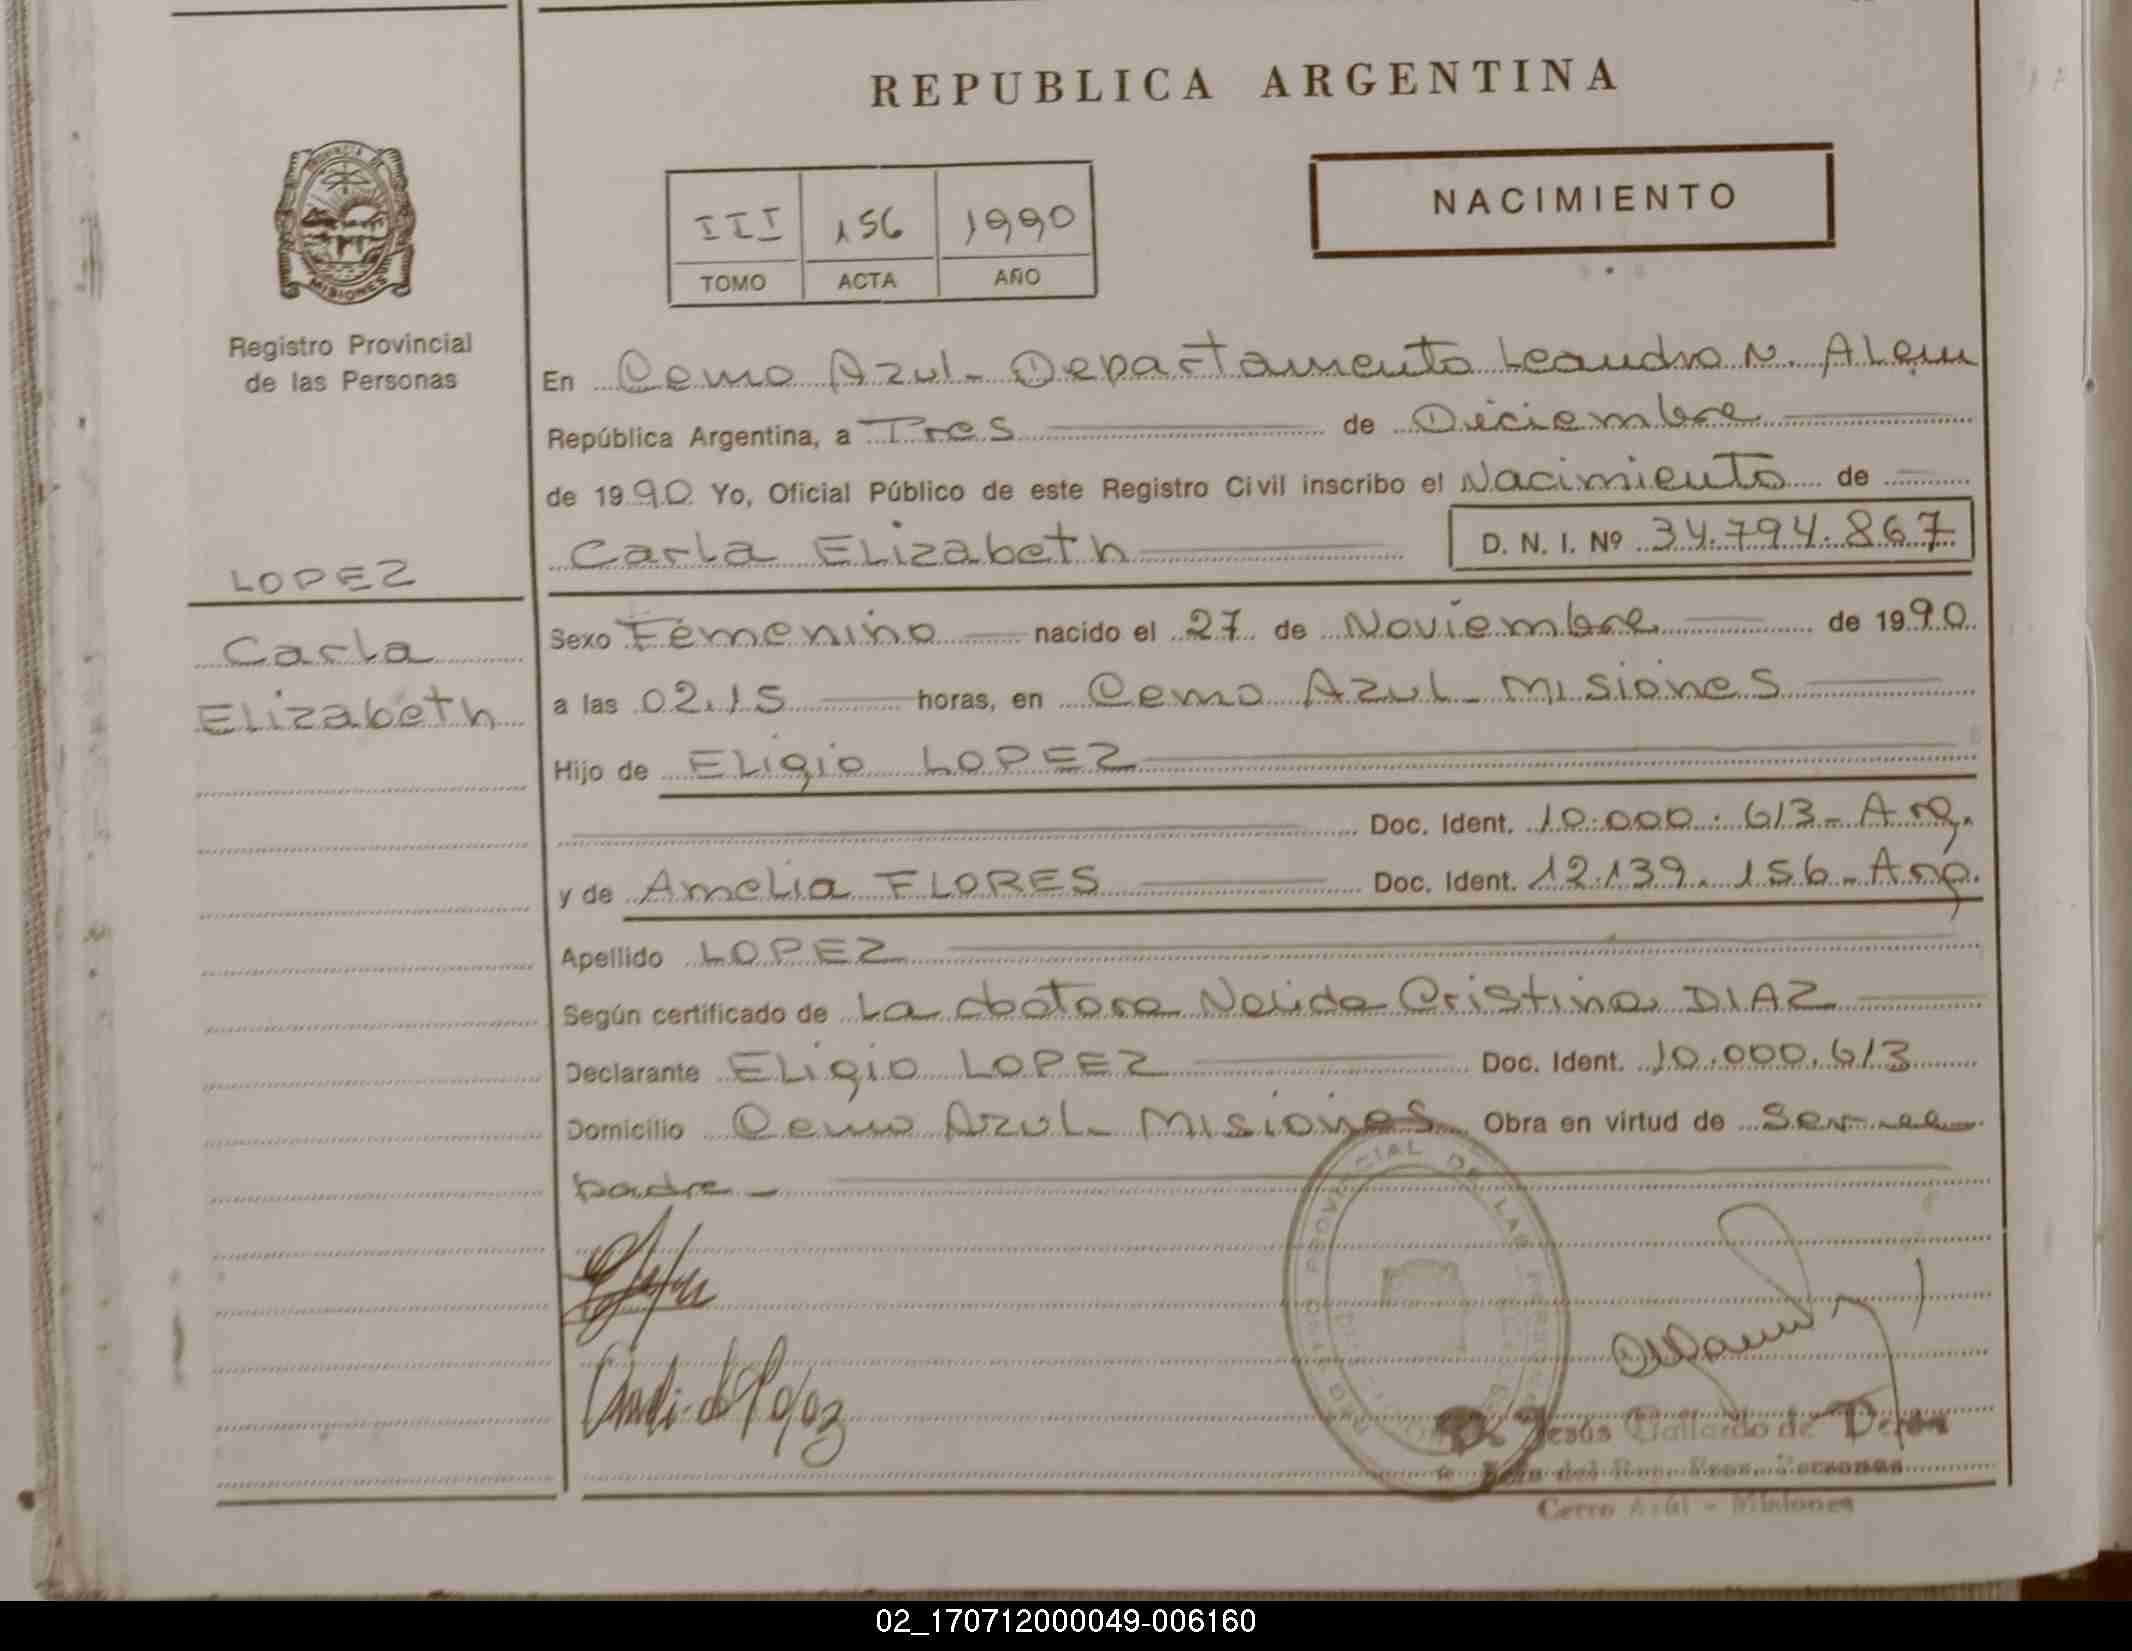 REPUBLICA ARGENTINA
PROVINCIA DE
MISIONES
Registro Provincial
de las Personas
III 156 1990
TOMO ACTA AÑO
NACIMIENTO
En Cerro Azul - Departamento Leandro N. Alem
República Argentina, a Tres de Diciembre
de 1990 Yo, Oficial Público de este Registro Civil inscribo el Nacimiento de
Carla Elizabeth D. N. I. Nº 34.794.867
LOPEZ
Carla
Elizabeth
Sexo Femenino nacido el 27 de Noviembre de 1990
a las 02.15 horas, en Cerro Azul - Misiones
Hijo de Eligio LOPEZ
Doc. Ident. 10.000.613 - Arg.
y de Amelia FLORES Doc. Ident. 12.139.156 - Arg.
Apellido LOPEZ
Según certificado de La doctora Nelida Cristina DIAZ
Declarante Eligio LOPEZ Doc. Ident. 10.000.613
Domicilio Cerro Azul - Misiones Obra en virtud de Ser el
padre -
PROVINCIAL DE LAS
Jesús Gallardo de
Personas
Cerro Azul - Misiones
02_170712000049-006160